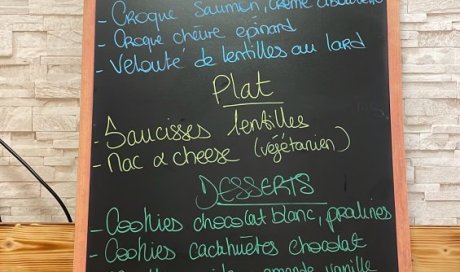 - Croque saumon, crème
- Croque chèvre épinard
- Velouté de lentilles au lard
Plat
- Saucisses lentilles
- Mac & cheese (végétarien)
DESSERTS
- Cookies chocolat blanc, pralines
- Cookies cacahuètes chocolat
amande vanille